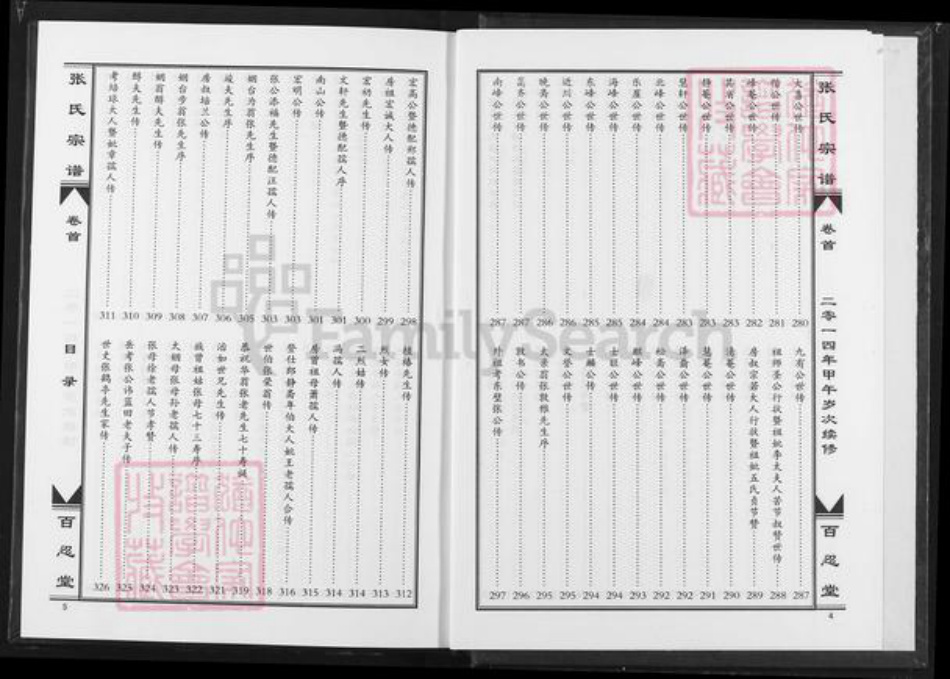 张氏宗谱
卷首
二零一四年甲午岁次续修
百忍堂
4
大喜公世传 280
偕公世传 281
峰菴公世传 282
公世传 283
静菴公世传 283
慧轩公世传 283
北峰公世传 284
乐崖公世传 284
海峰公世传 284
东峰公世传 285
近川公世传 285
晚翕公世传 286
公世传 287
南峰公世传 287
九有公世传 287
祖师圣公行状暨祖妣李太夫人苦节叔赞世传 288
房叔宗若大人行状暨祖妣五氏贞节赞 289
公世传 290
慧菴公世传 291
泽斋公世传 292
松斋公世传 292
麒峰公世传 293
士联公世传 294
士麟公传 294
文登公世传 295
大亲翁张敦维先生序 295
敦书公传 296
外祖考东壁张公传 297
宏高公暨德配郑孺人传 298
房祖宏诚大人传 299
宏初先生传 300
文轩先生暨德配孺人序 301
南山公传 301
宏明公传 303
张公添福先生暨德配汪孺人传 303
姻台为翁张先生序 305
竣夫先生序 306
房叔培兰公传 307
姻台步翁张先生序 308
姻翁醇夫先生传 309
醇夫先生传 310
考培球大人暨妣章孺人传 311
植椿先生传 312
烈女传 313
二烈姑传 314
冯孺人传 314
房曾祖母萧孺人传 315
登仕郎静斋年伯大人妣王老孺人合传 316
世伯张荣翁传 318
恭祝华翁张老先生七十寿 319
治如世兄先生传 321
族曾祖姑张母七十三寿序 322
大姻母张母孙老孺人传 323
张母徐老孺人节孝赞 324
岳考张公讳蓝田老夫子传 325
世丈张鹤亭先生家传 326
张氏宗谱
卷首
目录
百忍堂
5
FamilySearch